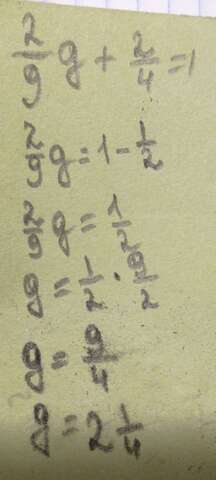 2/9 g + 2/4 = 1
2/9 g = 1 - 1/2
2/9 g = 1/2
g = 1/2 · 9/2
g = 9/4
g = 2 1/4